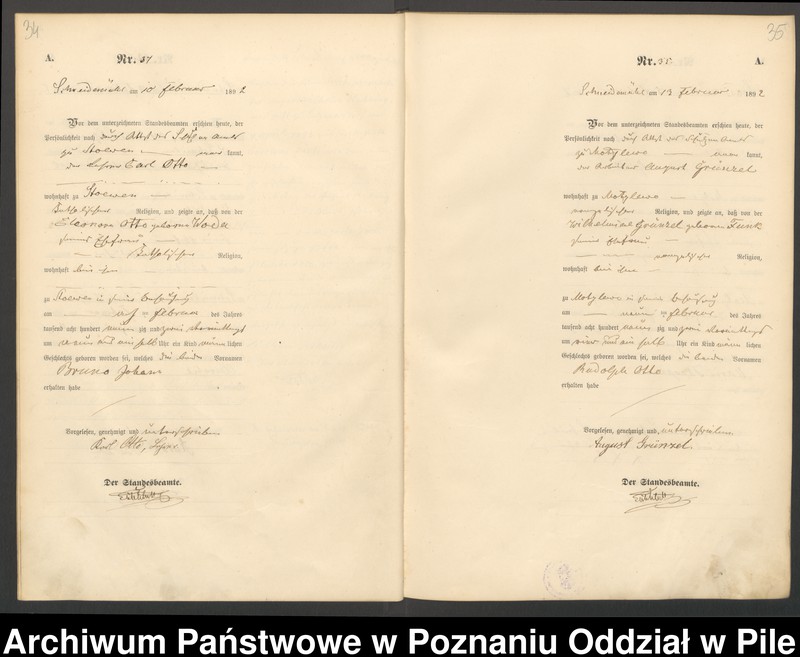 34
A.
Nr. 34
Schneidemühl am 10 Februar 1892
Vor dem unterzeichneten Standesbeamten erschien heute, der
Persönlichkeit nach durch Attest des
zu Stoewen kannt,
der Lehrer Carl Otto
wohnhaft zu Stoewen
katholischer Religion, und zeigte an, daß von der
Eleonora Otto geborene
seiner Ehefrau
katholischer Religion,
wohnhaft bei ihm
zu Stoewen in seiner Behausung
am Februar des Jahres
tausend acht hundert neunzig und zwei Vormittags
um neun und ein halb Uhr ein Kind männlichen
Geschlechts geboren worden sei, welches die beiden Vornamen
Bruno Johann
erhalten habe
Vorgelesen, genehmigt und unterschrieben
Karl Otto, Lehrer
Der Standesbeamte.
35
Nr. 35
A.
Schneidemühl am 13 Februar 1892
Vor dem unterzeichneten Standesbeamten erschien heute, der
Persönlichkeit nach durch Attest des Schulzen Amts
zu Motylewo kannt,
der Arbeiter August Grünzel
wohnhaft zu Motylewo
evangelischer Religion, und zeigte an, daß von der
Wilhelmine Grünzel geborenen Funk
seiner Ehefrau
evangelischer Religion,
wohnhaft bei ihm
zu Motylewo in seiner Behausung
am neunten Februar des Jahres
tausend acht hundert neunzig und zwei Vormittags
um vier und ein halb Uhr ein Kind männlichen
Geschlechts geboren worden sei, welches die beiden Vornamen
Rudolph Otto
erhalten habe
Vorgelesen, genehmigt und unterschrieben
August Grünzel
Der Standesbeamte.
Archiwum Państwowe w Poznaniu Oddział w Pile